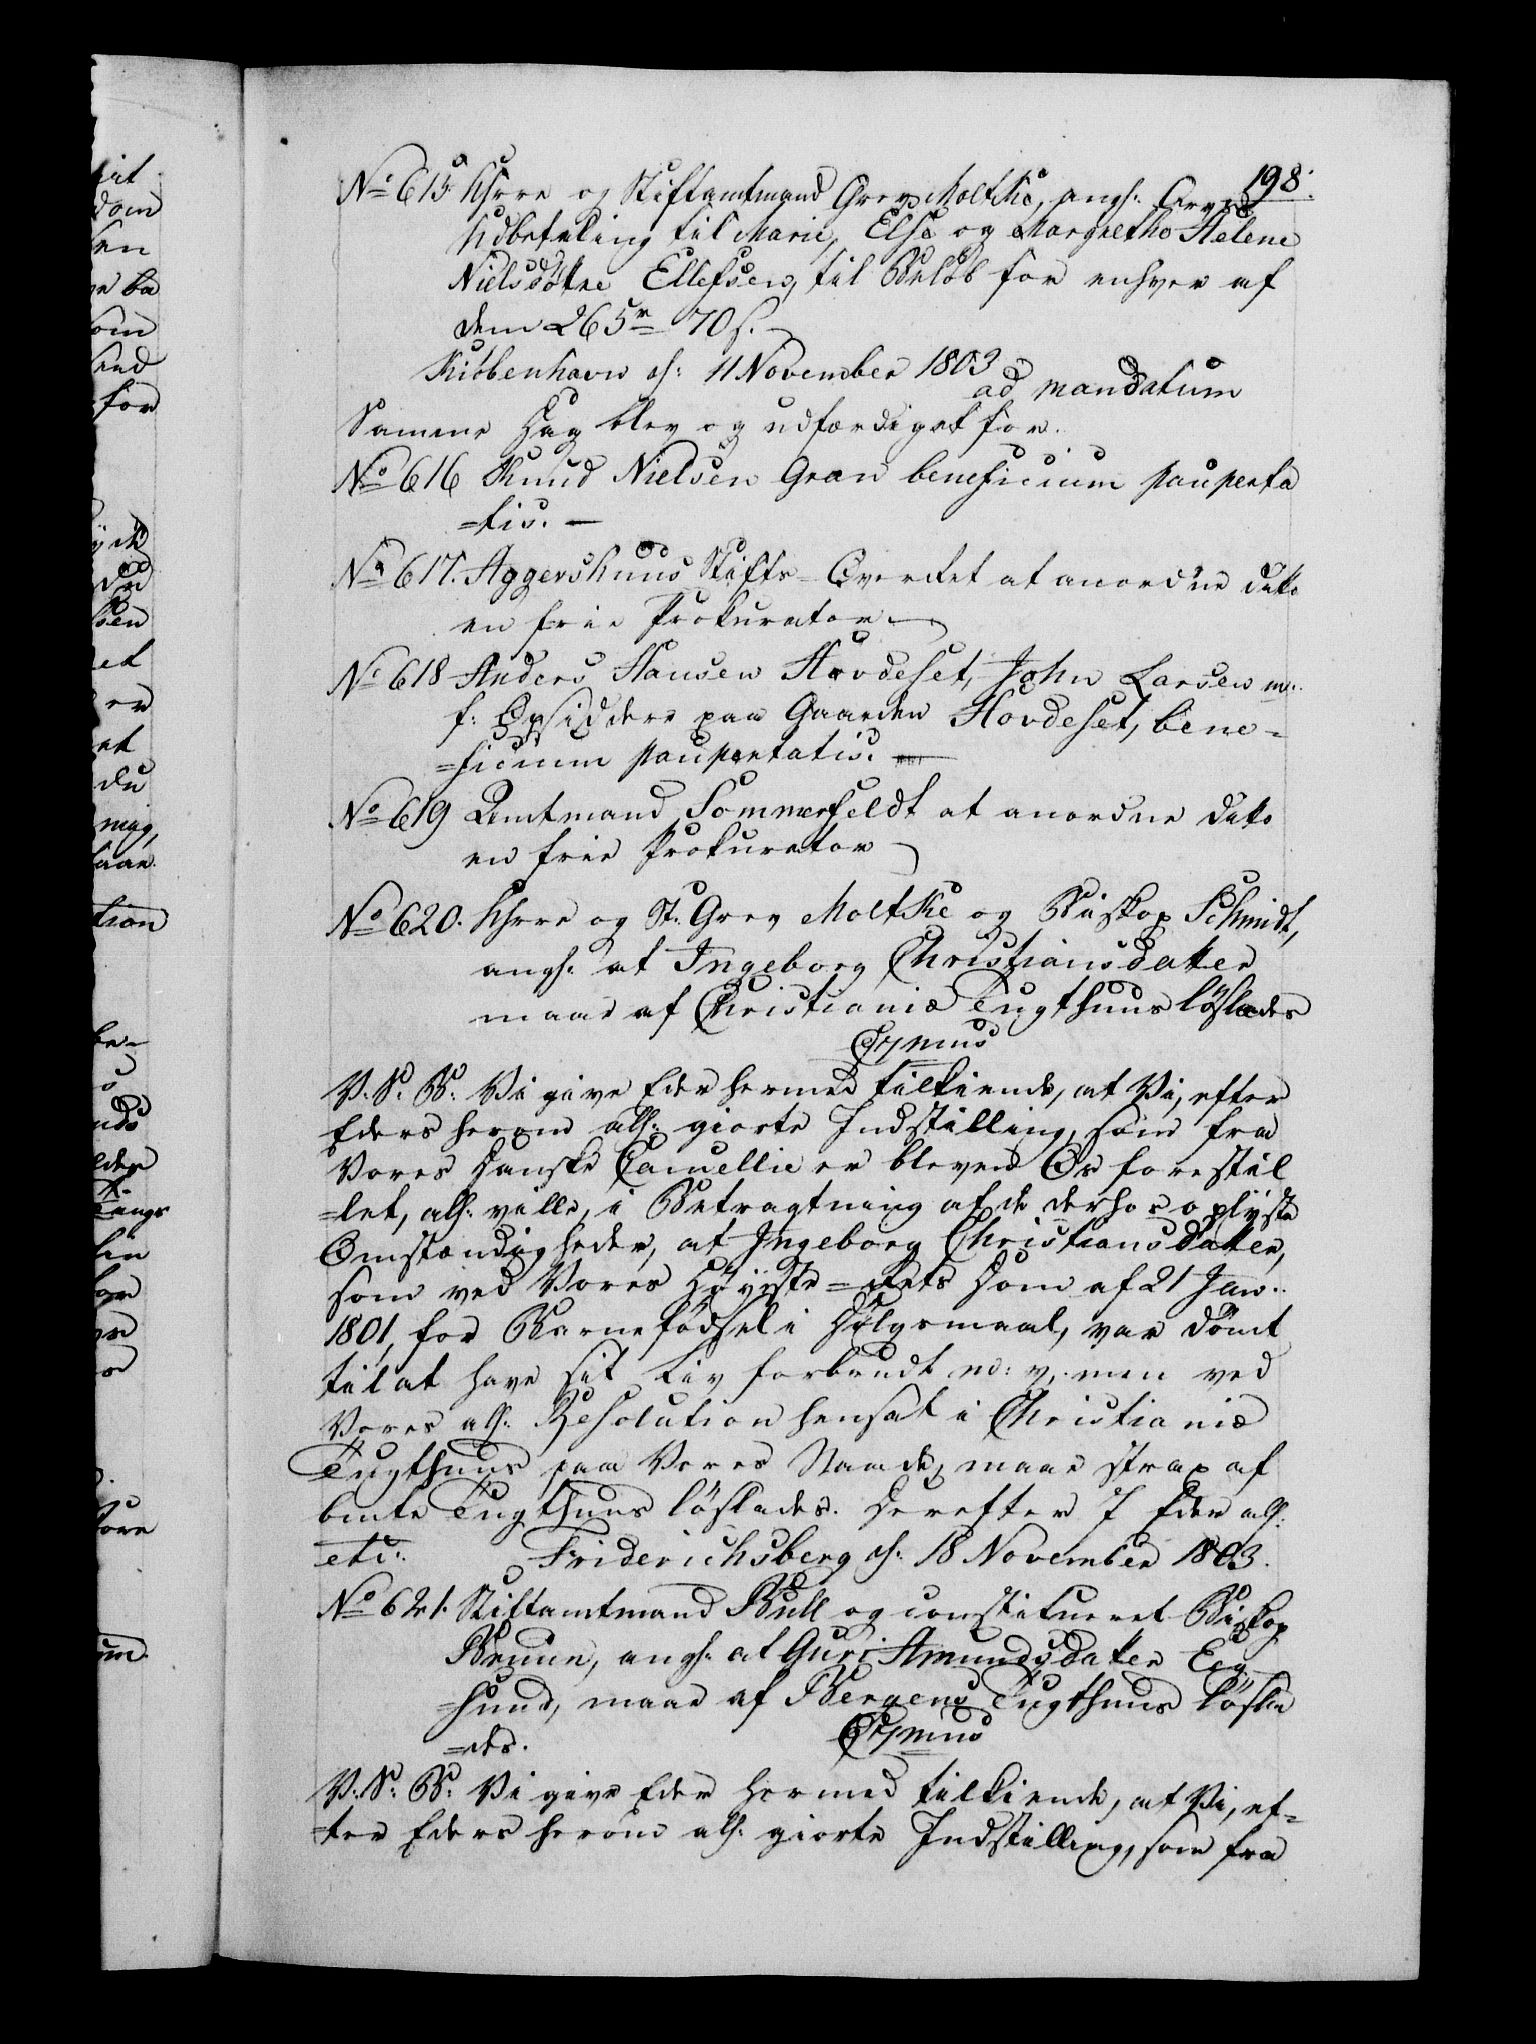 198.
No 615 Khrre og Stiftamtmand Grev Moltke, angh: Arvs
Udbetaling til Marie, Else og Margrethe Helene
Nielsdøttre Ellefsen, til Beløb for enhver af
dem 265 r 70 s.
Kiöbenhavn d: 11 November 1803
ad mandatum
Samme Dag blev og udfærdiget for.
No 616 Knud Nielsen Gran beneficium pauperta
=tis. —
No 617. Aggershuus Stifts-Overret at anordne ditto
en frie Prokurator
No 618 Anders Hansen Hovdeset, John Larsen m:
f: Opsiddere paa Gaarden Hovdeset, bene=
=ficium paupertatis. —
No 619 Amtmand Sommerfeldt at anordne ditto
en frie Prokurator
No 620. Khrre og St: Grev Moltke og Biskop Schmidt,
angh: at Ingeborg Christiansdatter
maae af Christianiæ Tugthuus løslades
V. S. B: Vi give Eder hermed tilkiende, at Vi, efter
Eders herom allh: giorte Indstilling, som fra
Vores Danske Cancellie er bleven Os forestil
=let, allh: ville, i Betragtning af de derhos oplyste
Omstændigheder, at Ingeborg Christiansdatter,
som ved Vores Høyeste=Rets Dom af 21 Jan:
1801, for Barnefødsel i Dølgsmaal, var dömt
til at have sit Liv forbrudt m: v, men ved
Vores allh: Resolution hensat i Christianiæ
Tugthuus paa Vores Naade, maae strax af
bmte Tugthuus löslades. Derefter I Eder allh:
etc: Friderichsberg d: 18 November 1803.
No 621. Stiftamtmand Bull og constitueret Biskop
Bruun, angh: at Guri Amundsdatter Eeg
=hund, maae af Bergens Tugthuus løsla
=des.
V. S. B: Vi give Eder hermed tilkiende, at Vi, ef=
=ter Eders herom allh: giorte Indstilling, som fra